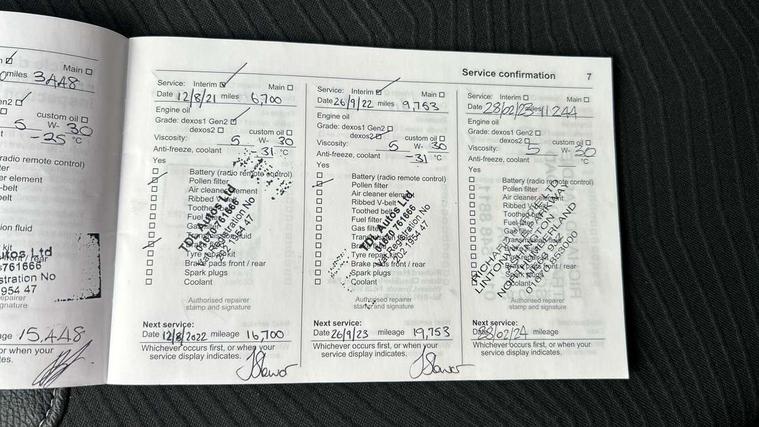 Service confirmation 7
Main
miles 3448
Gen2
custom oil
5 W- 30
-25 °C
radio remote control)
er element
-belt
belt
ion fluid
kit
ront / rear
utos Ltd
761666
stration No
954 47
repairer
gnature
age 15,448
or when your
es.
Service: Interim Main
Date 12/8/21 miles 6,700
Engine oil
Grade: dexos1 Gen2
dexos2 custom oil
Viscosity: 5 W- 30
Anti-freeze, coolant -31 °C
Yes
Battery (radio remote control)
Pollen filter
Air cleaner element
Ribbed
Toothed
Fuel
Gas
Tyre repair kit
Brake pads front / rear
Spark plugs
Coolant
TDL Autos Ltd
01670 761666
Vat Registration No
202 1954 47
Authorised repairer
stamp and signature
Next service:
Date 12/8/2022 mileage 16,700
Whichever occurs first, or when your
service display indicates.
Service: Interim Main
Date 26/9/22 miles 9,753
Engine oil
Grade: dexos1 Gen2
dexos2 custom oil
Viscosity: 5 W- 30
Anti-freeze, coolant -31 °C
Yes
Battery (radio remote control)
Pollen filter
Air cleaner element
Ribbed V-belt
Toothed belt
Fuel filter
Gas filter
Tyre repair kit
Brake pads front / rear
Spark plugs
Coolant
TDL Autos Ltd
01670 761666
Vat Registration No
202 1954 47
Authorised repairer
stamp and signature
Next service:
Date 26/9/23 mileage 19,753
Whichever occurs first, or when your
service display indicates.
Service: Interim Main
Date 28/02/23 miles 11244
Engine oil
Grade: dexos1 Gen2
dexos2 custom oil
Viscosity: 5 W- 30
Anti-freeze, coolant °C
Yes
Battery (radio remote control)
Pollen filter
Air cleaner element
Ribbed V-belt
Toothed belt
Fuel filter
Gas filter
Brake pads front / rear
Spark plugs
Coolant
Authorised repairer
stamp and signature
Next service:
Date 28/02/24 mileage
Whichever occurs first, or when your
service display indicates.